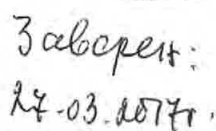 Заверен:
27.03.2017г.